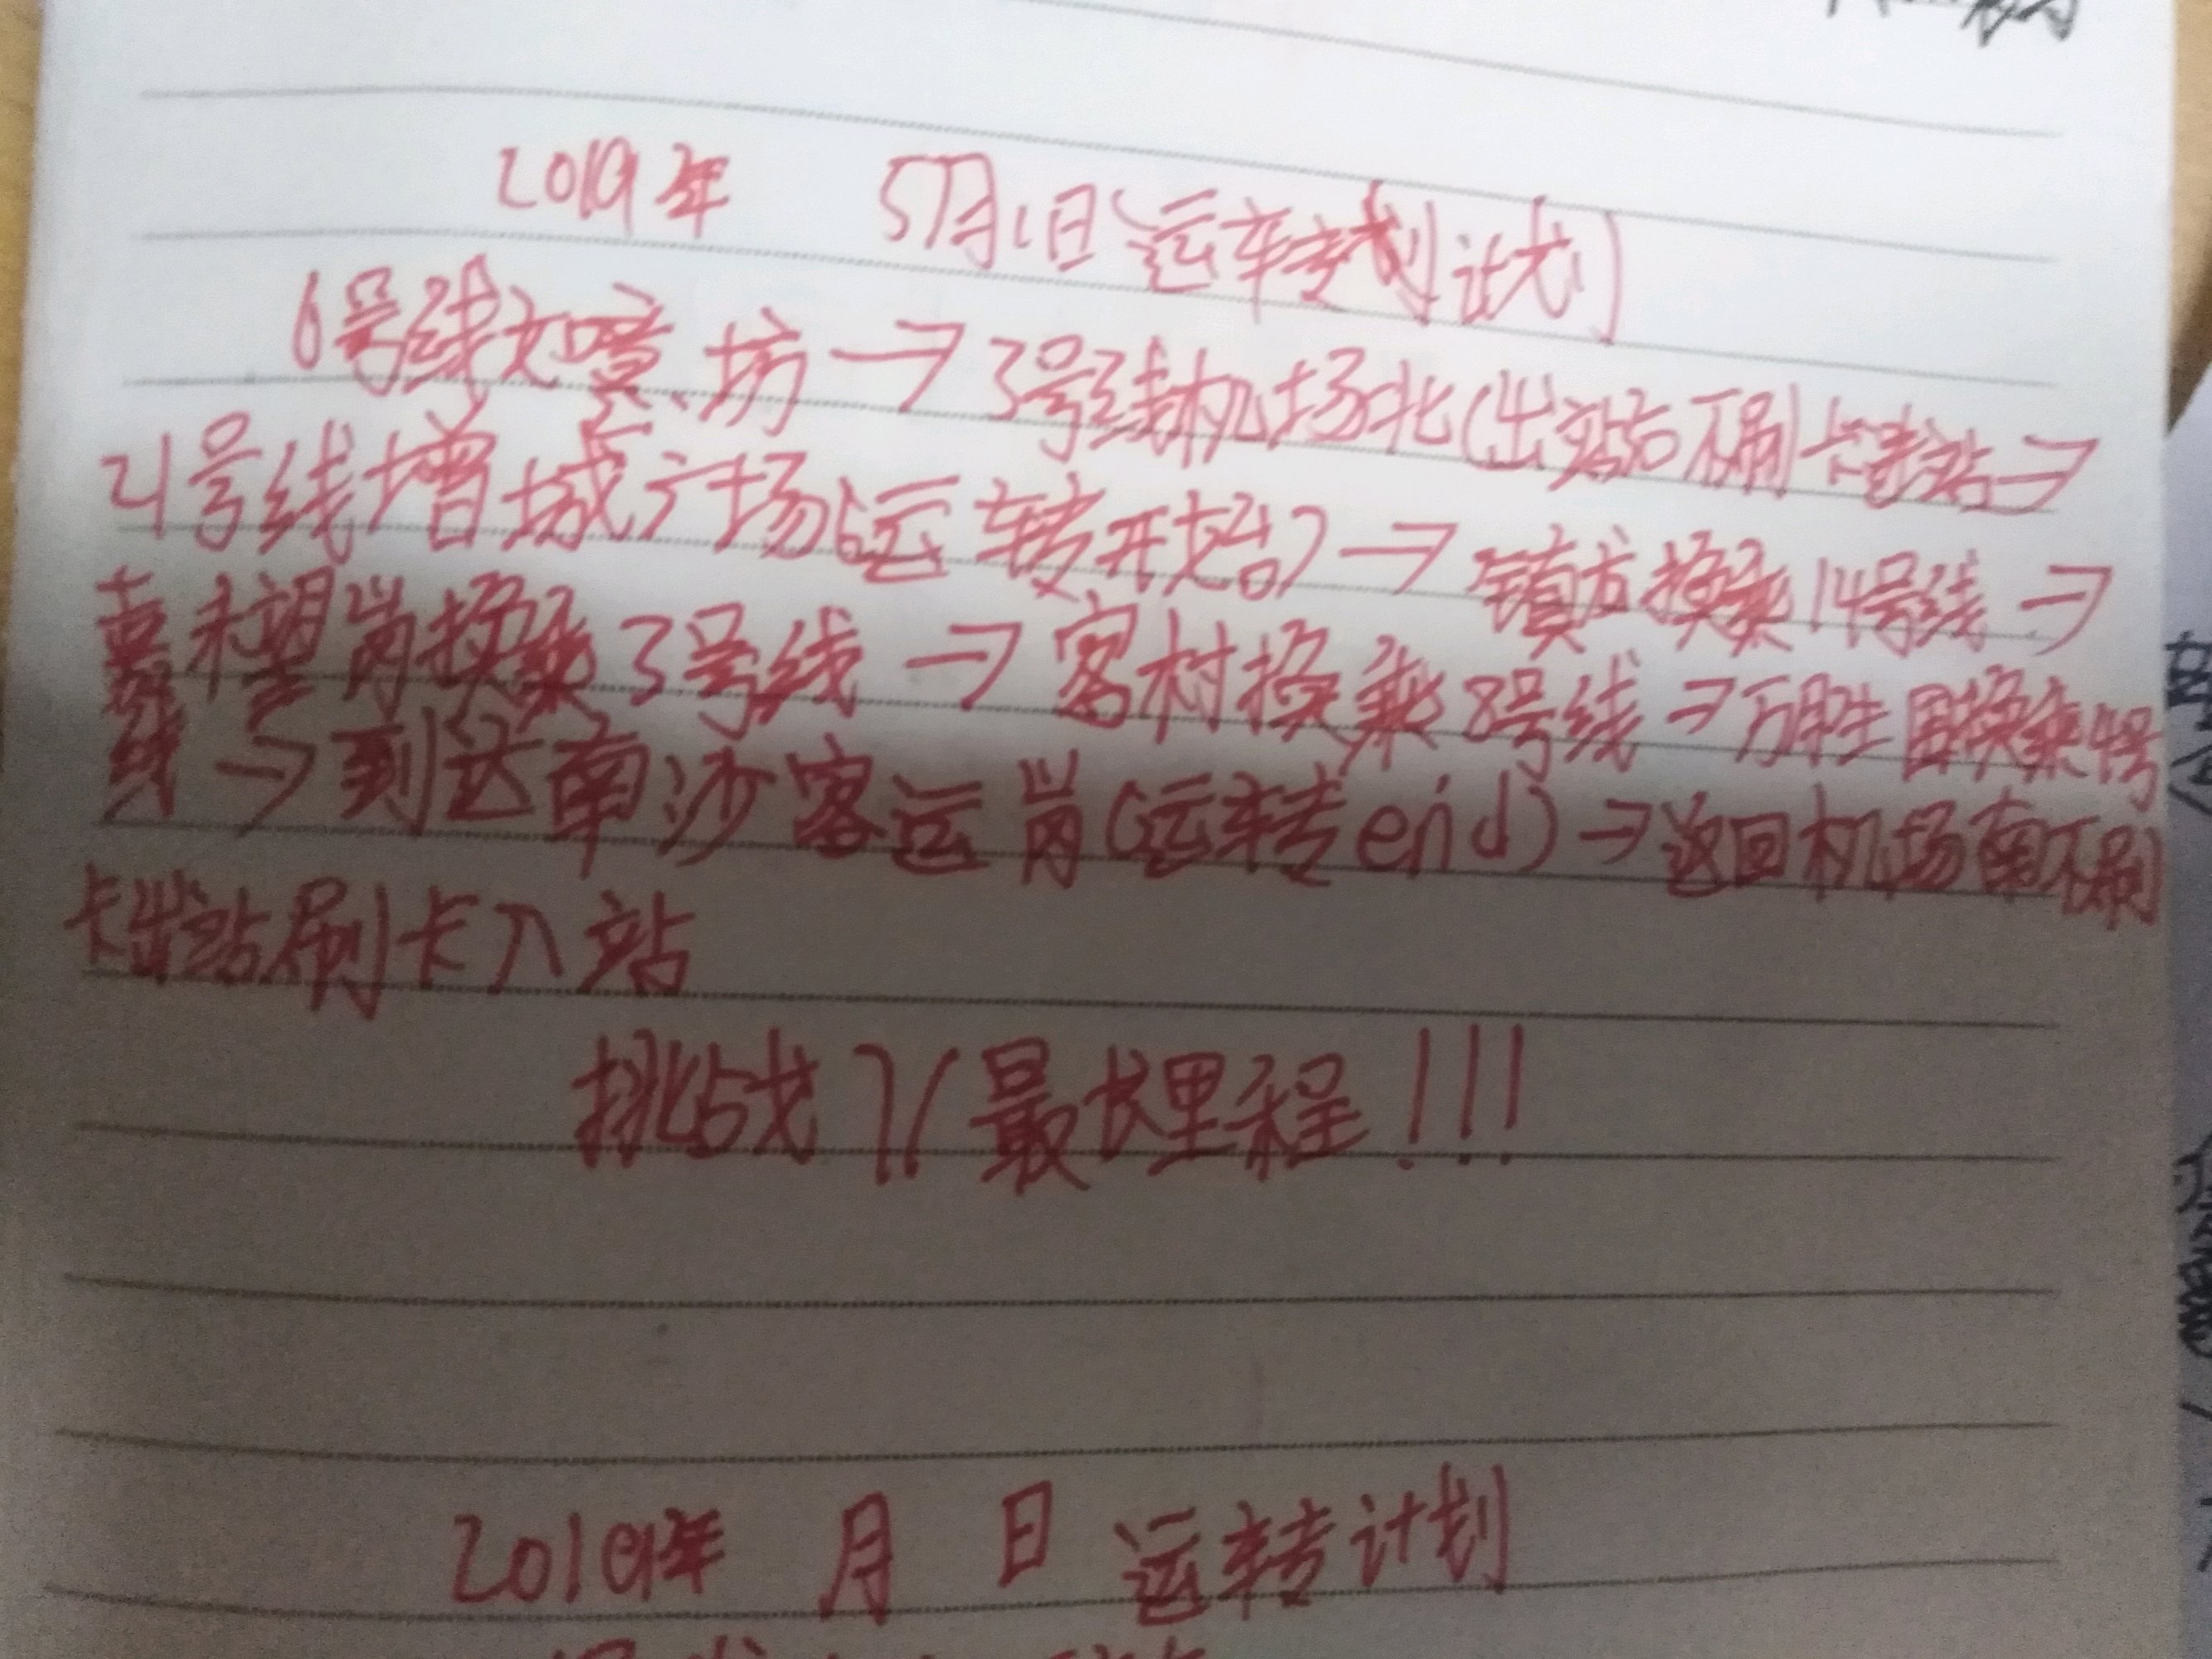 2019年 5月1日运转计划
6号线文 坊→3号线机场北(出站后不刷卡进站→
21号线增城广场(运转开始)→镇龙换乘14号线→
嘉禾望岗换乘3号线→客村换乘8号线→万胜围换乘4号
线→到达南沙客运岗(运转end)→返回机场南不刷
卡出站刷卡入站
挑战 最长里程!!!
2019年 月 日 运转计划